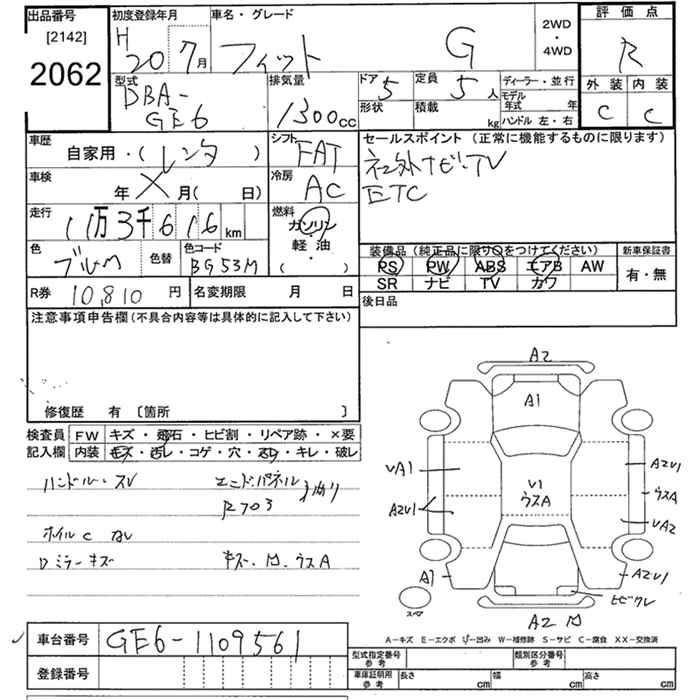 出品番号 [2142] 2062
初度登録年月 H 20 7月
車名・グレード フィット G
2WD ・ 4WD
評価点 R
外装 C 内装 C
型式 DBA-GE6
排気量 1300cc
ドア 5 定員 5人
形状 積載 kg
ディーラー・並行
モデル年式 年
ハンドル 左・右
車歴 自家用・(レンタ)
シフト FAT
セールスポイント (正常に機能するものに限ります)
社外ナビ・TV
ETC
車検 年 X 月( 日)
冷房 AC
走行 11万3千616km
燃料 ガソリン 軽油 ( ・ )
色 ブルーM 色替 色コード BG53M
装備品(純正品に限り○をつけてください)
PS PW ABS エアB AW
SR ナビ TV カワ
新車保証書 有・無
R券 10,810円 名変期限 月 日
後日品
注意事項申告欄(不具合内容等は具体的に記入して下さい)
修復歴 有 〔箇所 〕
検査員記入欄 FW キズ・飛石・ヒビ割・リペア跡・×要
内装 キズ・汚レ・コゲ・穴・スレ・キレ・破レ
ハンドル・スレ
エンドパネル
R703
ホイルC
Dミラーキズ
キズ・凹・ウスA
A2
A1
UA1
A2U1
U1
ウスA
A2U1
ウスA
UA2
A2U1
A1
ヒビワレ
スペア
A2 凹
A-キズ E-エクボ U-凹み W-補修跡 S-サビ C-腐食 XX-交換済
車台番号 GE6-1109561
登録番号
型式指定番号 参考 類別区分番号 参考
車庫証明用 参考 長さ cm 幅 cm 高さ cm